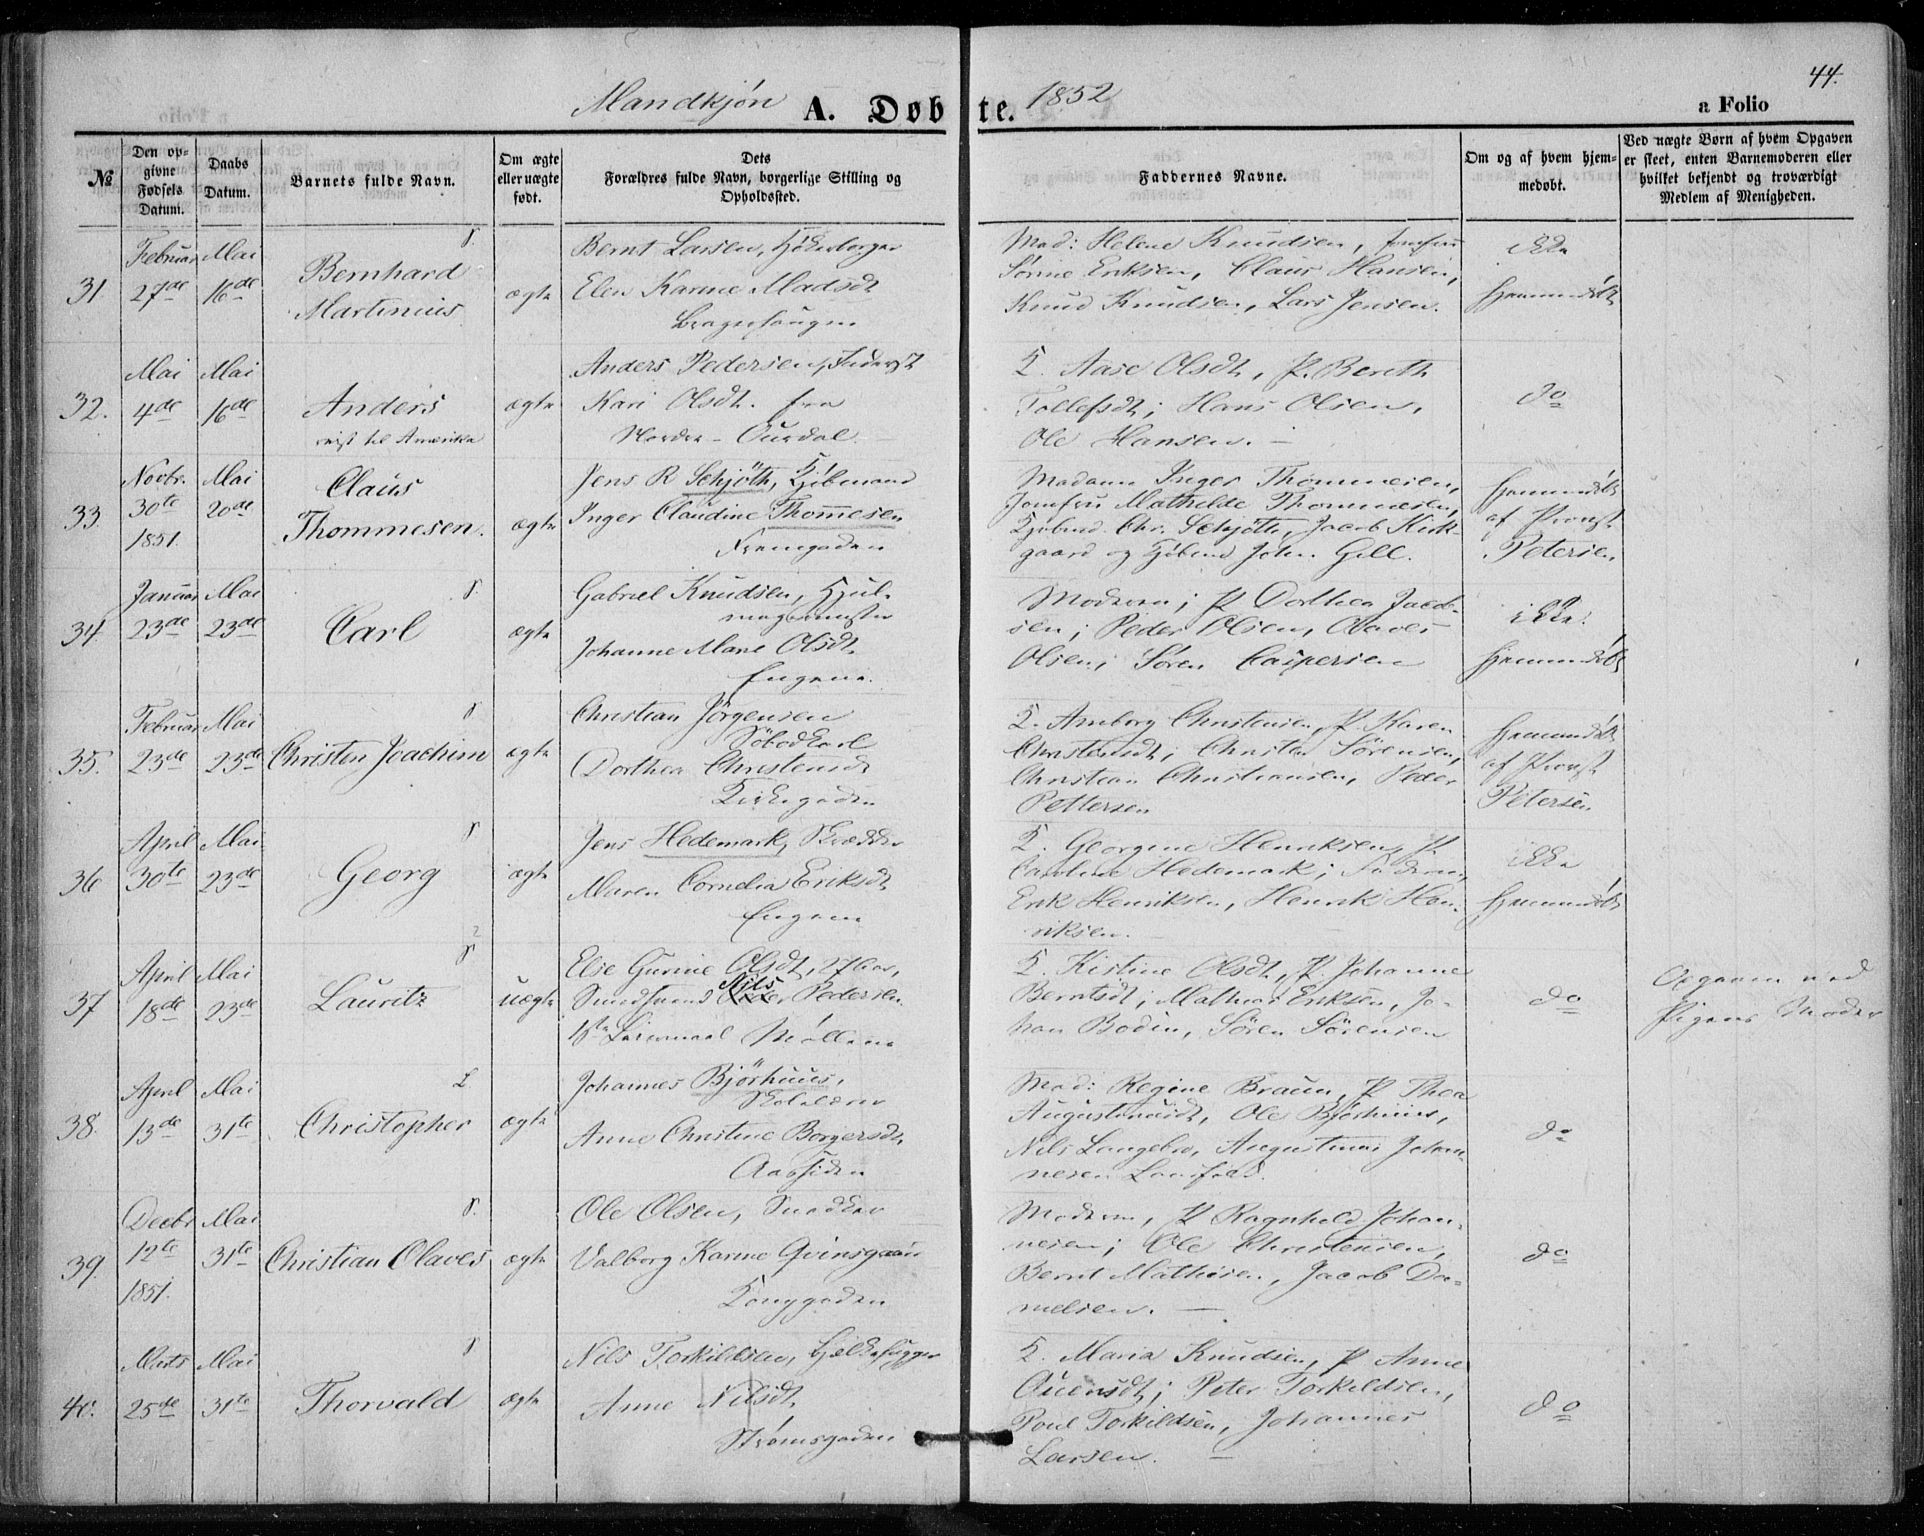 44.
Mandkjøn A. Døbte. 1852
a Folio
№
Den opgivne Fødsels Datum.
Daabs Datum.
Barnets fulde Navn.
Om ægte eller uægte født.
Dets Forældres fulde Navn, borgerlige Stilling og Opholdssted.
Faddernes Navne.
Om og af hvem hjemmedøbt.
Ved uægte Børn af hvem Opgaven er skeet, enten Barnemoderen eller hvilket bekjendt og troværdigt Medlem af Menigheden.
31
Februar 27de
Mai 16de
Bernhard
Martinius
ægte
Bernt Larsen,
Elen Karine Madsdt
Mad: Helene Knudsen, Jomfru
Sørine Eriksen, Claus Hansen,
Knud Knudsen, Lars Jensen.
ikke
hjemmedøbt
32.
Mai 4de
Mai 16de
Anders
reist til Amerika
ægte
Anders Pedersen, Inderst
Kari Olsdt. fra
Nordre-Ourdal
K. Aase Olsdt, P. Bereth
Tollefsdt; Hans Olsen,
Ole Hansen.
do
33.
Novbr. 30te 1851.
Mai 20de
Claus
Thommesen.
ægte
Jens R Schjøth, Kjøbmand
Inger Claudine Thomesen
Madam Inger Thommesen,
Jomfru Mathilde Thommesen,
Kjøbmd. Chr. Schjøtt, Jacob Kirkgaard og Kjøbmd John Gell.
hjemmedøbt
af Provst
Petersen
34.
Januar 23de
Mai 23de
Carl
ægte
Gabriel Knudsen, Hjulmagermester
Johanne Marie Olsdt.
Engene.
Moderen; P Dorthea Jacobsen; Peder Olsen, Olaves
Olsen; Søren Caspersen
ikke
hjemmedøbt
35.
Februar 23de
Mai 23de
Christen Joachim
ægte
Christian Jørgensen
Dorthea Christensdt
Kirkegaden
K. Amborg Christensen, P. Karen
Christensdt; Christen Sørensen,
Christian Christiansen, Peder
Pettersen
hjemmedøbt
af Provst
Petersen
36
April 30te
Mai 23de
Georg
ægte
Jens Hedemark, Skrædder
Maren Cornelia Eriksdt
Engene
K. Georgine Henriksen, P.
Caroline Hedemark; Faderen,
Erik Henriksen, Henrik Henriksen.
ikke
hjemmedøbt
37
April 18de
Mai 23de
Lauritz
uægte
Else Gurine Olsdt, 27 Aar,
Nils Pedersen
1ste Leiermaal Møllene
K. Kistine Olsdt, P. Johanne
Berntsdt; Mathias Eriksen, Johan Bodin, Søren Sørensen
do
Opgaven ved
Pigens Moder
38.
April 13de
Mai 31te
Christopher
ægte
Johannes Bjørhuus,
Skolelærer
Anne Christine Borgersdt.
Aassiden
Mad: Regine Braun, P Thea
Augustinusdt, Ole Bjørhuus,
Nils Langebro, Augustinus Johannesen
do
39.
Decbr 12te 1851.
Mai 31te
Christian Olaves
ægte
Ole Olsen, Snedker
Valborg Karine Qvinsgaau
Konggaden
Moderen, P Ragnhild Johannesen; Ole Christensen,
Bernt Mathisen, Jacob Danielsen.
do
40.
Marts 25de
Mai 31te
Thorvald
ægte
Nils Torkildsen,
Anne Nilsdt.
Strømsgaden
K. Maria Knudsen, P Anne
Ouensdt; Peter Torkildsen,
Poul Torkildsen, Johannes
Larsen.
do